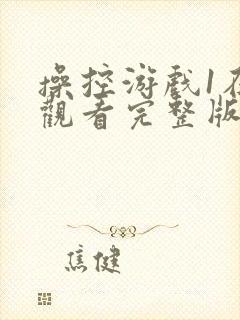 操控游戲1在
觀看完整版
焦健